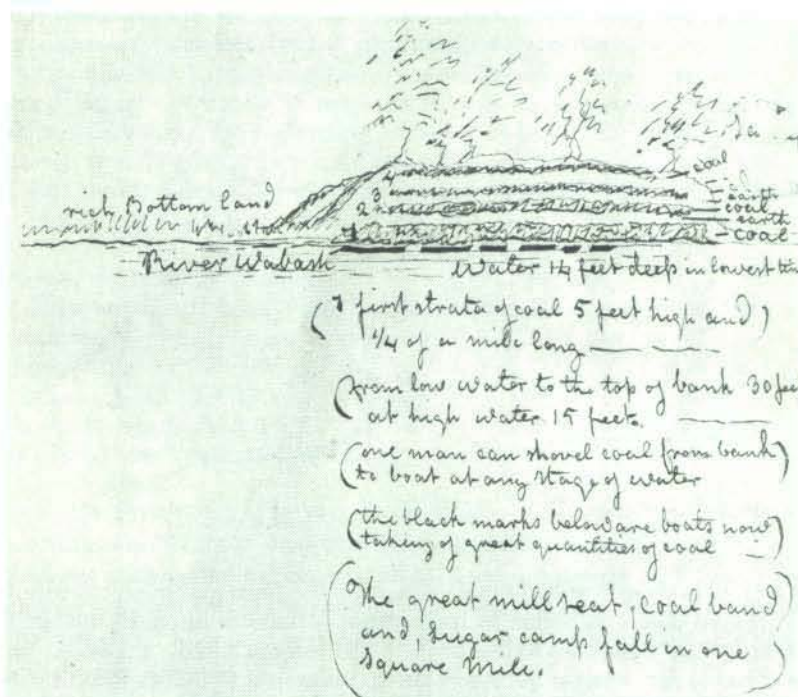 coal
4
3
earth
2
coal
earth
1
coal
rich Bottom land
River Wabash
Water 14 feet deep in lowest
(1 first strata of coal 5 feet high and)
1/4 of a mile long
(from low water to the top of bank 30 fee
at high water 15 feet.
(one man can shovel coal from bank)
to boat at any stage of water
(the black marks below are boats now)
taking of great quantities of coal
(The great mill seat, coal band
and, Sugar camp fall in one
Square Mile.